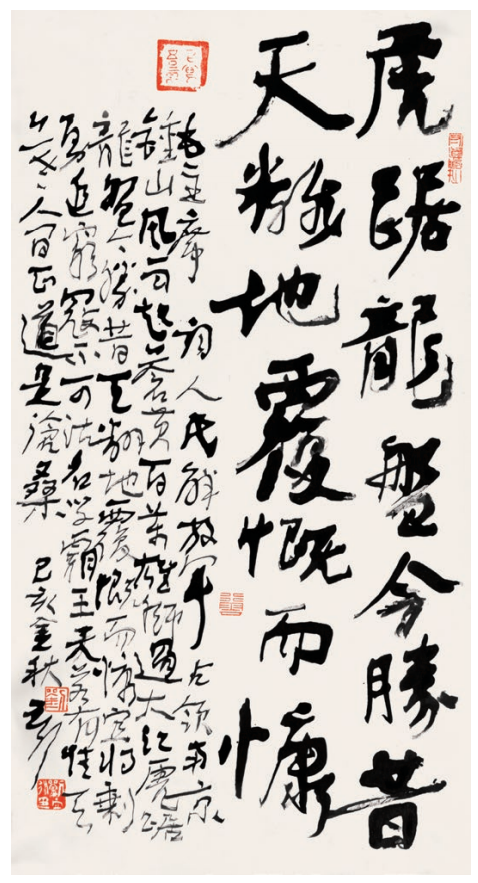 虎踞龍盤今勝昔
天翻地覆慨而慷
毛主席詞人民解放軍占領南京
鍾山風雨起蒼黃百萬雄師過大江虎踞
龍盤今勝昔天翻地覆慨而慷宜將剩
勇追窮寇不可沽名學霸王天若有情天
亦老人間正道是滄桑 己亥金秋